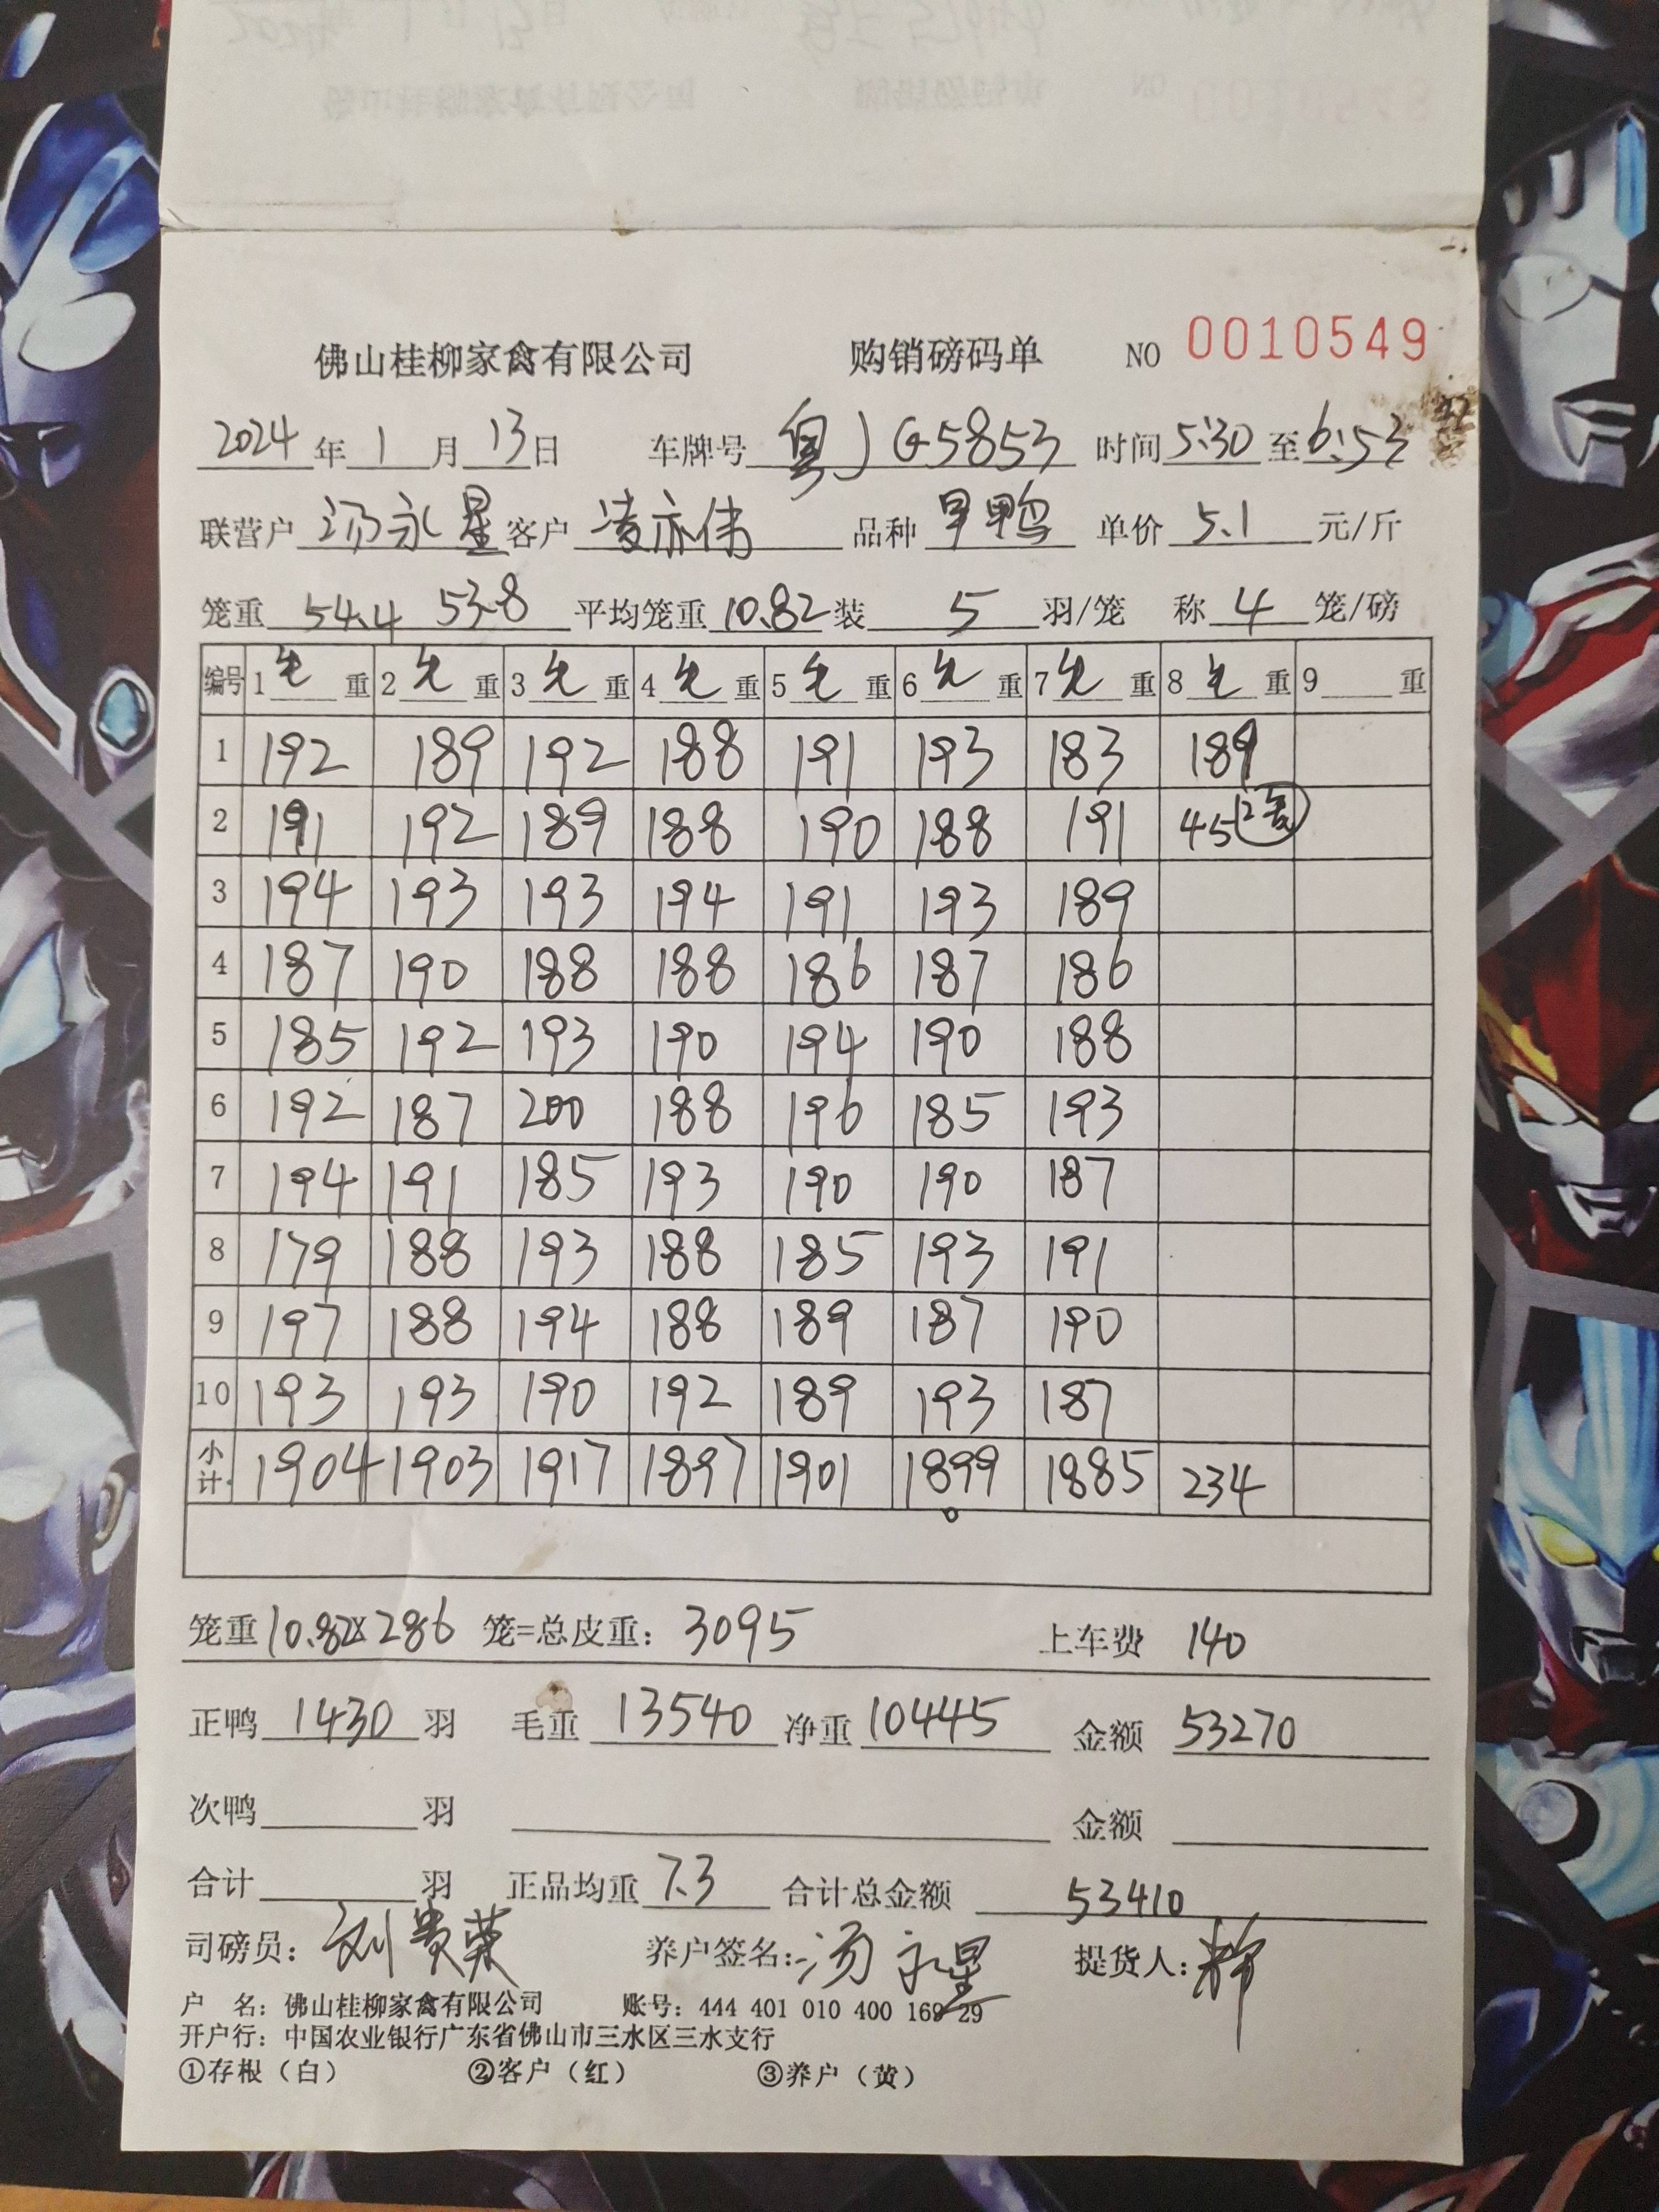 佛山桂柳家禽有限公司 购销磅码单 NO 0010549
2024年1月13日 车牌号 粤JG5853 时间5:30至6:53
联营户 汤永星 客户 凌亦伟 品种 旱鸭 单价 5.1 元/斤
笼重 54.4 53.8 平均笼重 10.82 装 5 羽/笼 称 4 笼/磅
编号 1毛重 2毛重 3毛重 4毛重 5毛重 6毛重 7毛重 8毛重 9重
1 192 189 192 188 191 193 183 189
2 191 192 189 188 190 188 191 45 2笼
3 194 193 193 194 191 193 189
4 187 190 188 188 186 187 186
5 185 192 193 190 194 190 188
6 192 187 200 188 196 185 193
7 194 191 185 193 190 190 187
8 179 188 193 188 185 193 191
9 197 188 194 188 189 187 190
10 193 193 190 192 189 193 187
小计. 1904 1903 1917 1897 1901 1899 1885 234
笼重 10.82×286 笼=总皮重: 3095 上车费 140
正鸭 1430 羽 毛重 13540 净重 10445 金额 53270
次鸭 羽 金额
合计 羽 正品均重 7.3 合计总金额 53410
司磅员: 刘贵荣 养户签名: 汤永星 提货人:
户 名: 佛山桂柳家禽有限公司 账号: 444 401 010 400 169 29
开户行: 中国农业银行广东省佛山市三水区三水支行
①存根（白） ②客户（红） ③养户（黄）